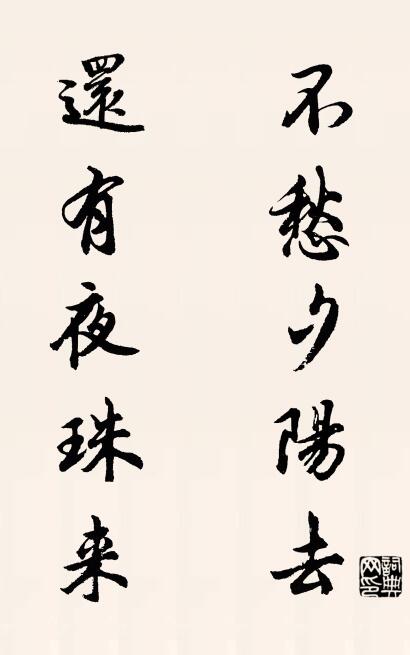 不愁夕陽去
還有夜珠来
詞典网印